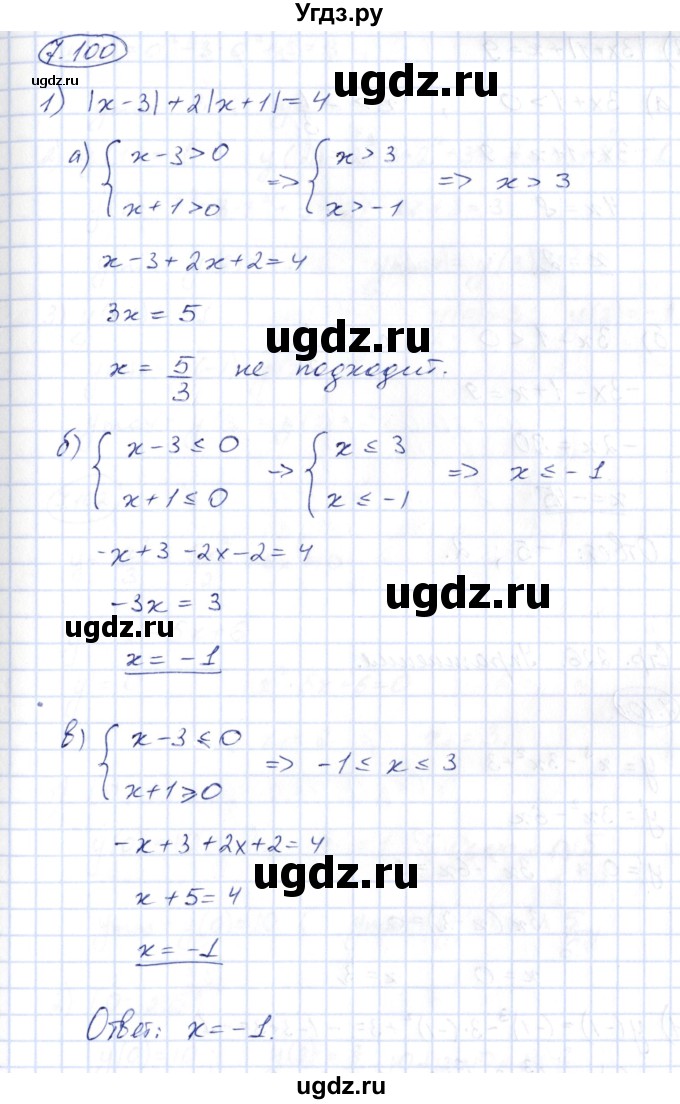 Угдз.ру
7.100
ugdz.ru
ugdz.ru
1) |x-3|+2|x+1|=4
а) { x-3>0 => { x>3 => x>3
x+1>0 x>-1
x-3+2x+2=4
3x=5
ugdz.ru
x=5/3 не подходит.
б) { x-3≤0 -> { x≤3 => x≤-1
x+1≤0 x≤-1
-x+3-2x-2=4
ugdz.ru
-3x=3
ugdz.ru
x=-1
в) { x-3≤0 => -1≤x≤3
x+1≥0
-x+3+2x+2=4
ugdz.ru
x+5=4
x=-1
Ответ: x=-1.
ugdz.ru